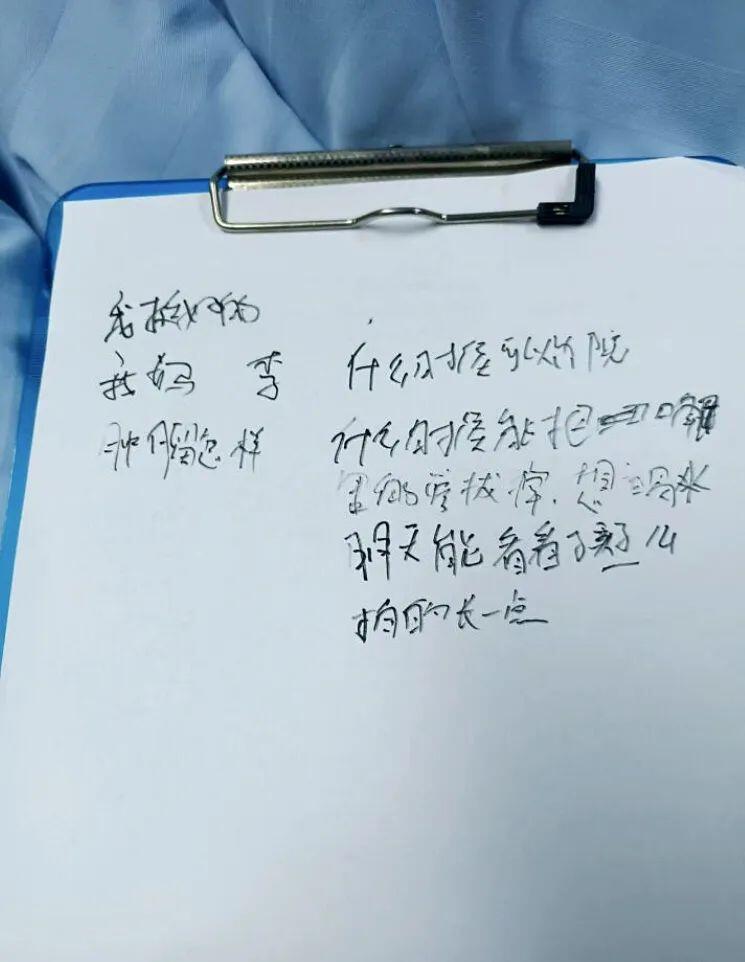 我挺好的
我妈 李
肿留怎样
什么时候可以出院
什么时候能把 口
里的管拔掉.想喝水
明天能看看孩子么
拍的长一点